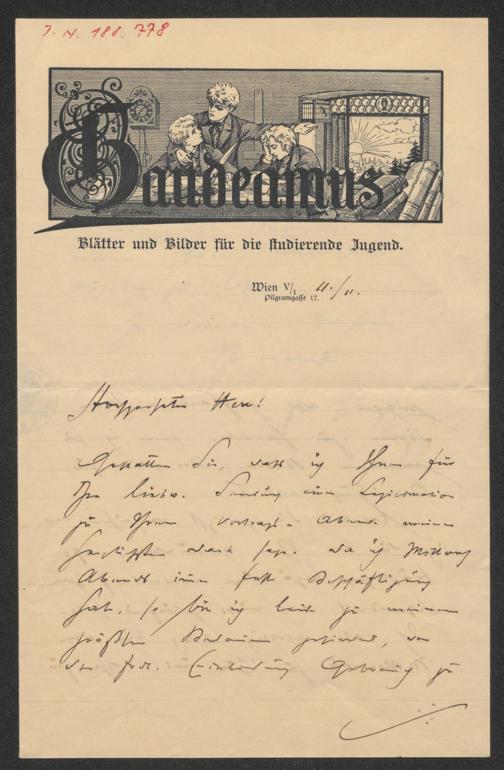 J. N. 188.778
Gaudeamus
Blätter und Bilder für die studierende Jugend.
Wien V/1 11./11.
Pilgramgasse 17.
Hochgeehrter Herr!
Gestatten Sie, dass ich Ihnen für
Ihre liebw. Sendung einer Legitimation
zu Ihrem Vortrags-Abende meinen
herzlichsten Dank sage. Da ich Mittwoch
Abends eine feste Beschäftigung
habe, so bin ich leider zu meinem
größten Bedauern gehindert, von
der Einladung Gebrauch zu